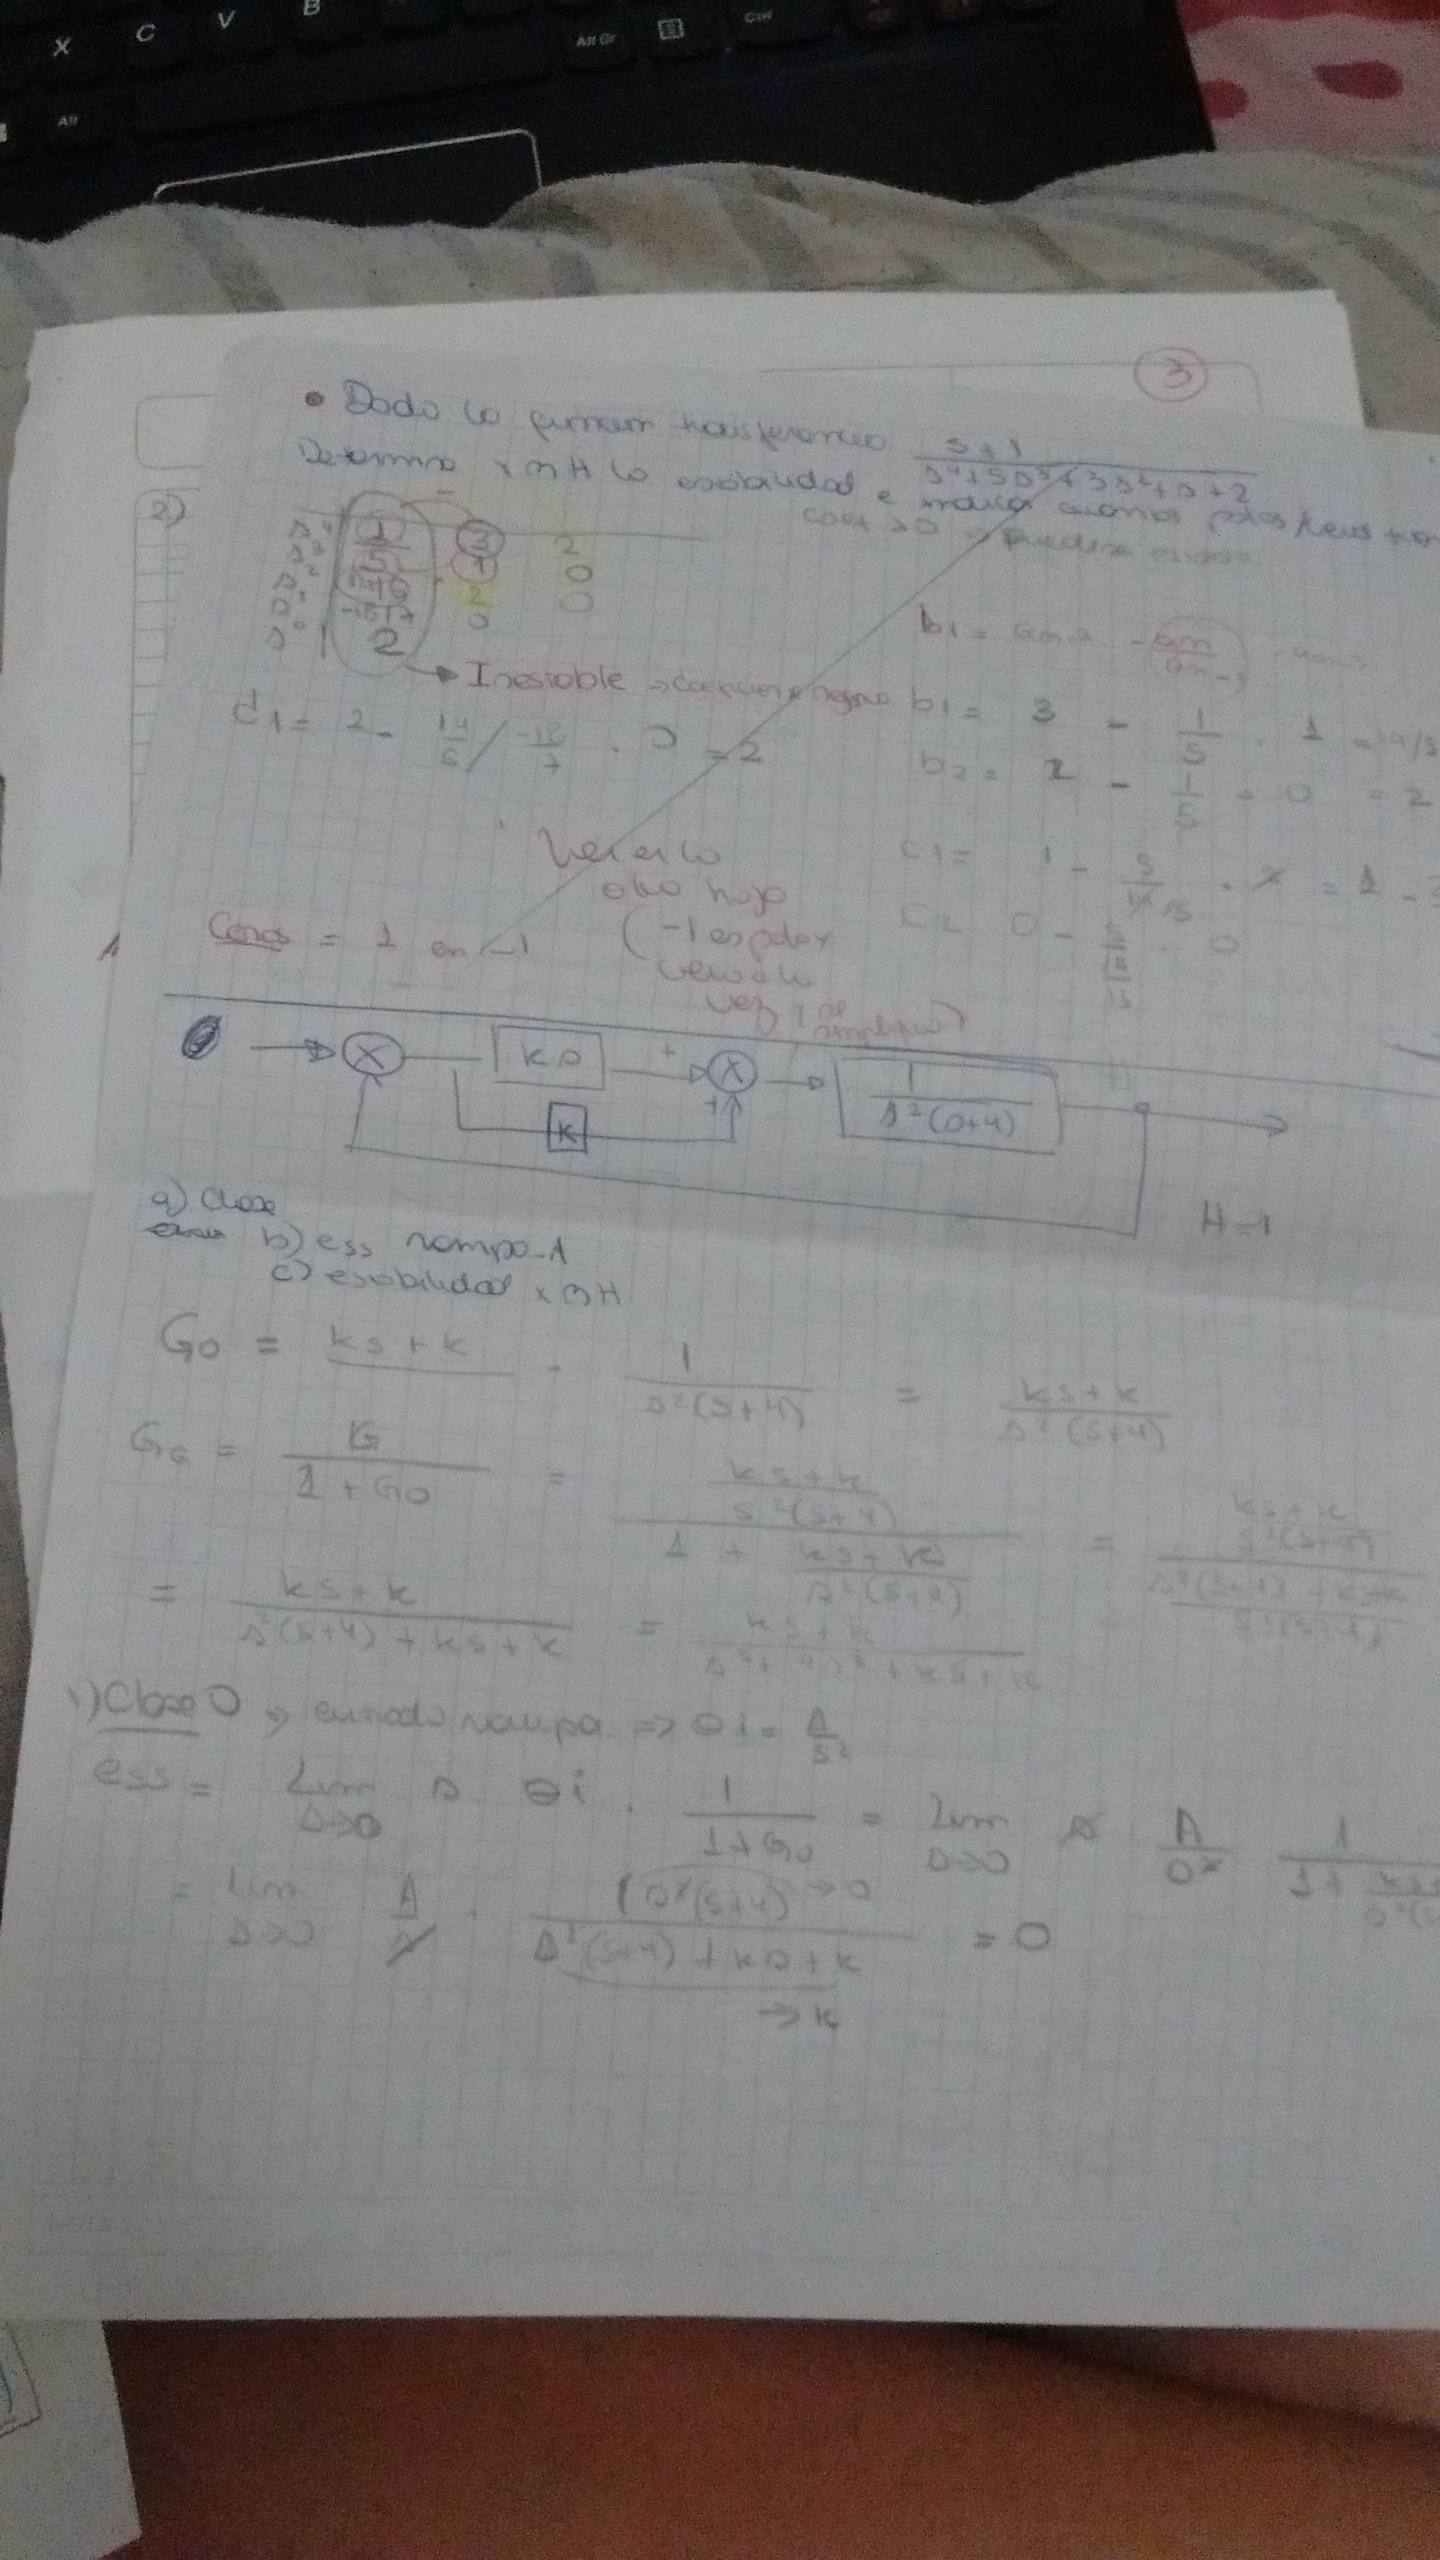 X C V B Alt Gr Ctrl
Alt
3
• Dado la transferencia s+1 / s⁴+5s³+3s²+s+2
Determina x RH la estabilidad e indica cuantos polos
coef >0 → puede ser estable
2)
s⁴ 1 3 2
s³ 5 1 0
s² 14/5 2 0
s¹ -18/7 0
s⁰ 2
→ Inestable → coeficiente negativo
b1 = an-2 - an/an-1 · an-3
b1 = 3 - 1/5 · 1 = 14/5
d1 = 2 - 14/5 / -18/7 · 0 = 2
b2 = 2 - 1/5 · 0 = 2
c1 = 1 - 5/14/5 · 2 = 1 -
c2 0 - · 0
Ver en la
otra hoja
(-1 es polo y
cero a la
vez y se
simplifica)
Ceros = 1 en -1
ks
+
+
k
1 / s²(s+4)
H=1
a) Clase
b) ess rampa A
c) estabilidad x RH
G0 = ks+k · 1 / s²(s+4) = ks+k / s²(s+4)
G = G / 1+G0 = ks+k / s²(s+4) / 1 + ks+k / s²(s+4) = ks+k / s²(s+4) / s²(s+4)+ks+k / s²(s+4)
= ks+k / s²(s+4)+ks+k = ks+k / s³+4s²+ks+k
Clase 0 → entrada rampa => θi = A/s²
ess = Lim s→0 s θi · 1 / 1+G0 = Lim s→0 s A/s² 1 / 1+
= Lim s→0 A/s · s²(s+4) → 0 / s²(s+4)+ks+k = 0
→ k